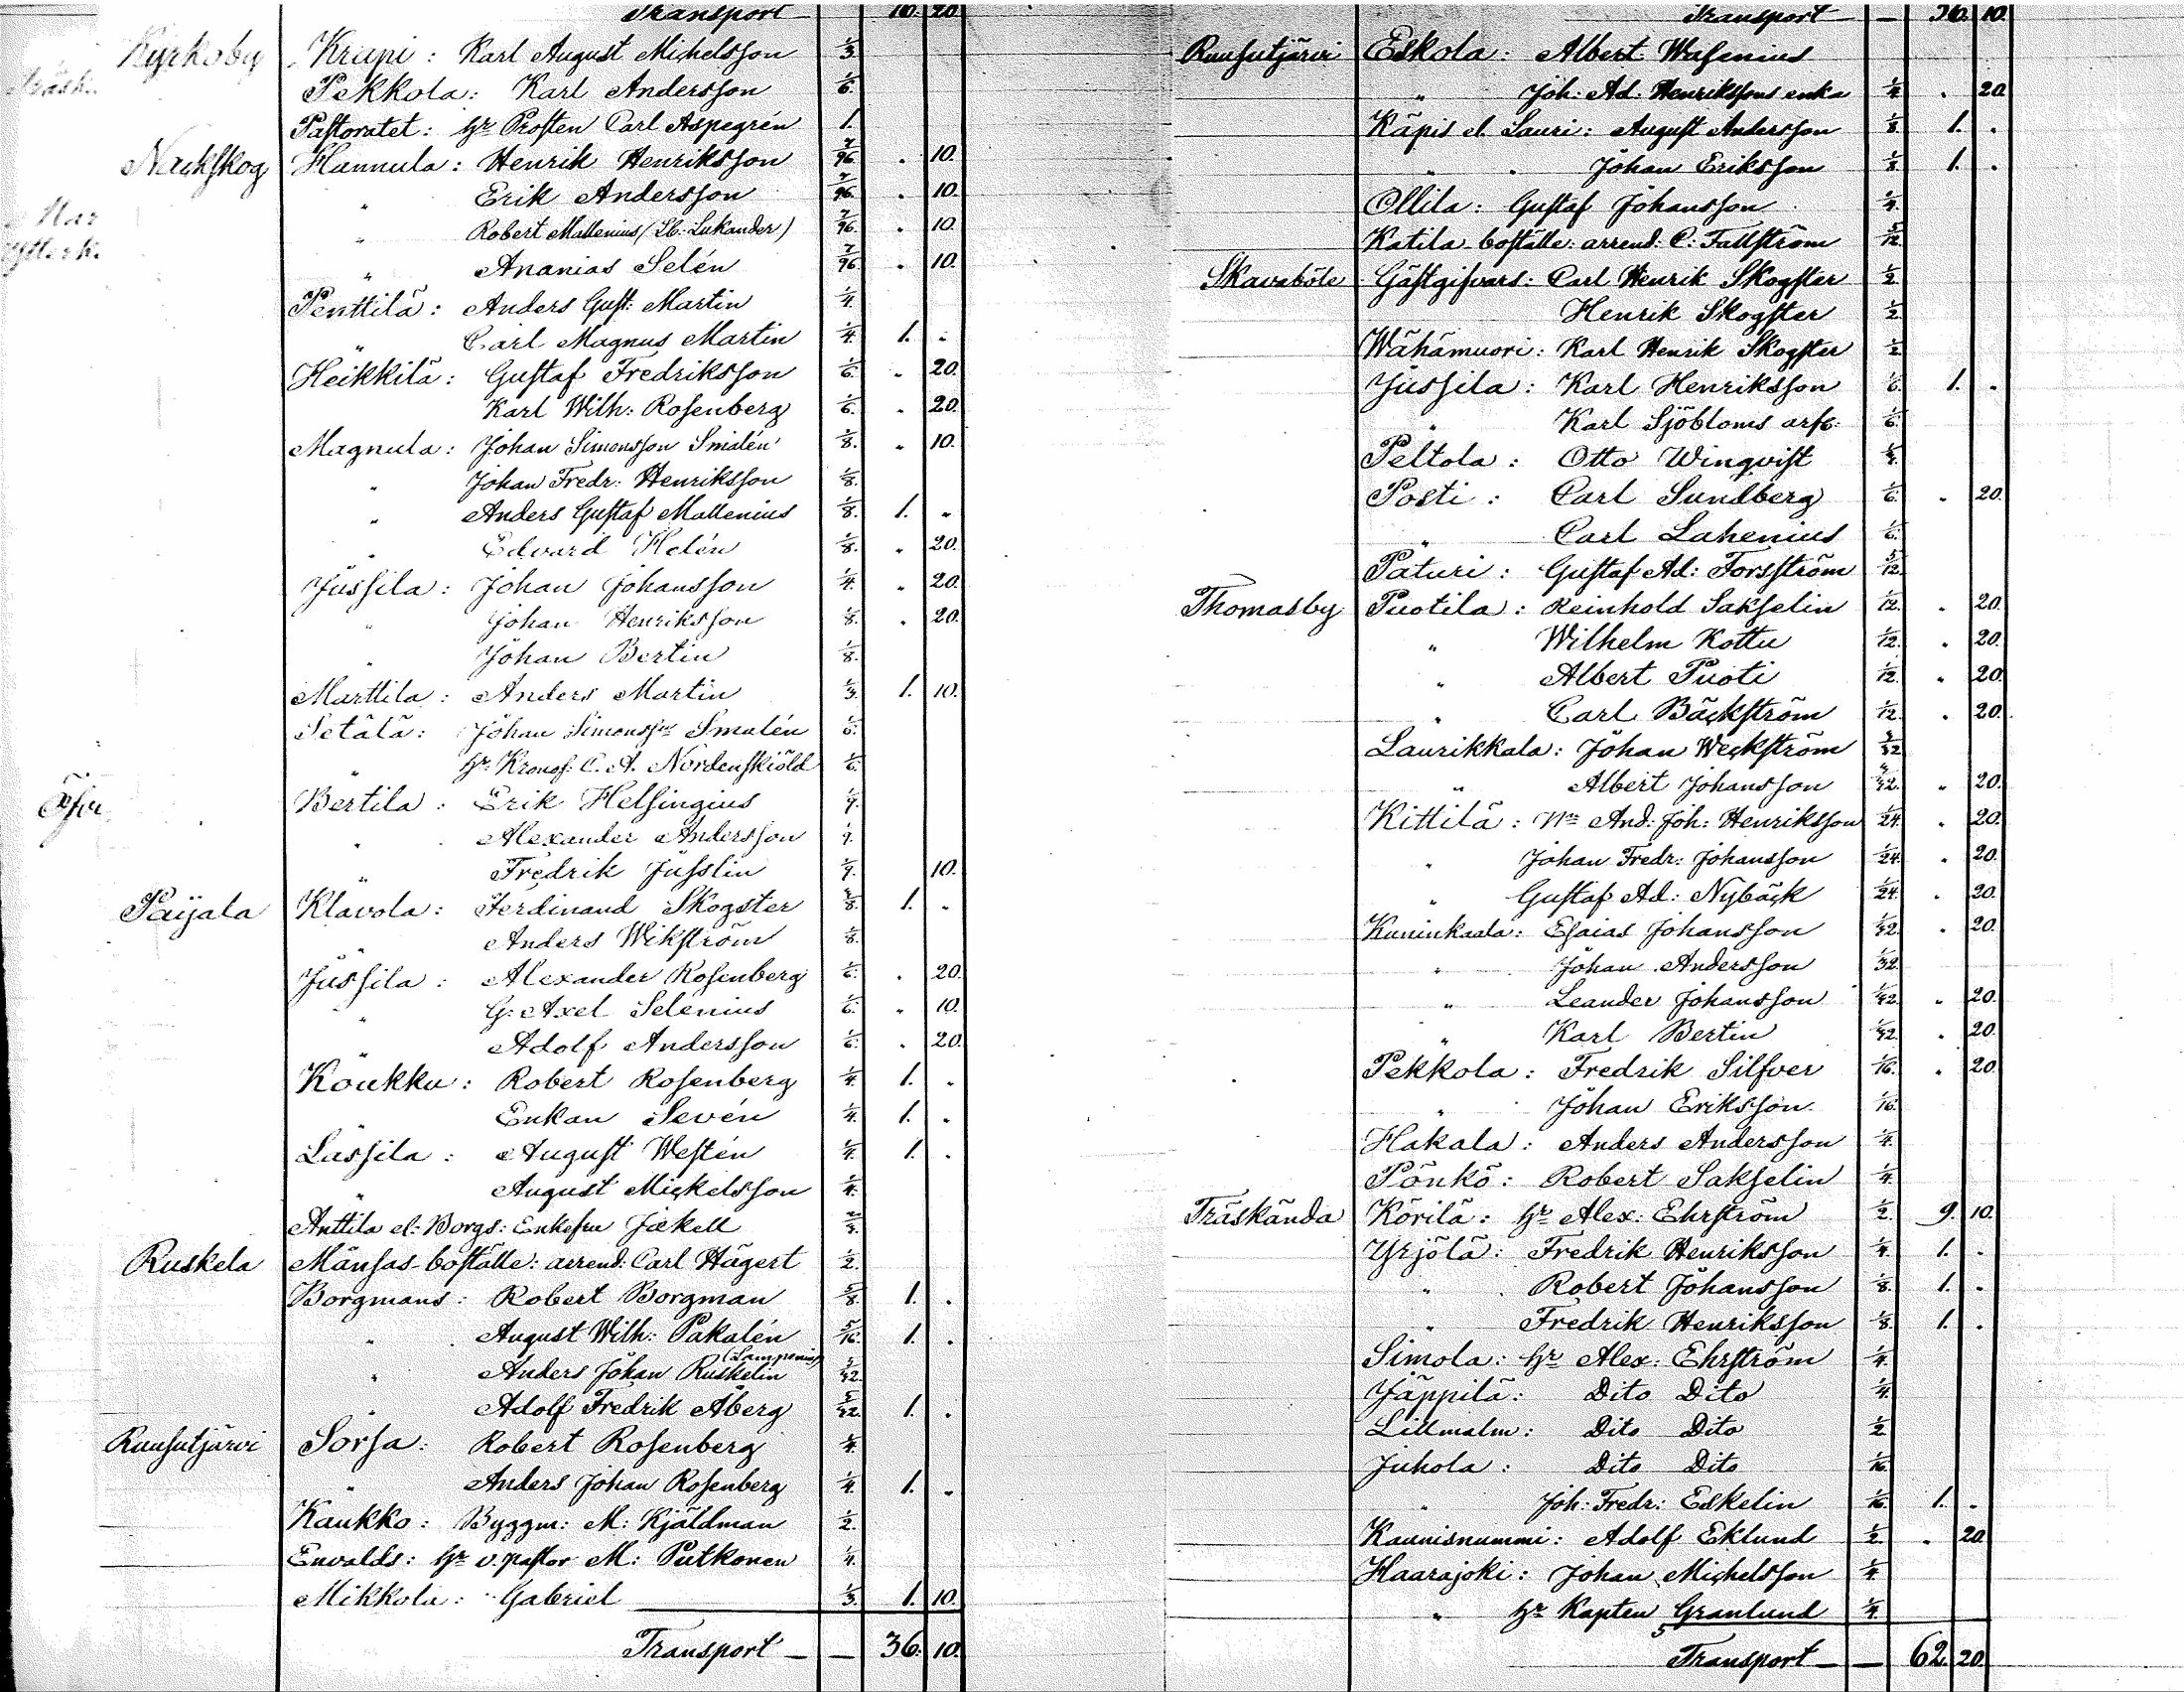 Transport 16. 20
Kyrkoby Krapi: Karl August Michelsson 1/3.
Pekkola: Karl Andersson 1/6.
Pastoratet: Hr Prosten Carl Aspegrén 1.
Nackskog Hannula: Henrik Henriksson 7/96 . 10.
" Erik Andersson 7/96. . 10.
" Robert Mattenius (Lb: Lukander) 7/96. . 10.
" Ananias Selén 7/96 . 10.
Penttilä: Anders Gust: Martin 1/4.
" Carl Magnus Martin 1/4. 1. "
Heikkilä: Gustaf Fredriksson 1/6. " 20.
Karl Wilh: Rosenberg 1/6. " 20.
Magnula: Johan Simonsson Smalén 1/8. " 10.
" Johan Fredr: Henriksson 1/8.
" Anders Gustaf Mattenius 1/8. 1. "
" Edvard Helén 1/8. " 20.
Jussila: Johan Johansson 1/4. " 20.
" Johan Henriksson 1/8. . 20.
" Johan Bertin 1/8.
Marttila: Anders Martin 1/3. 1. 10.
Setälä: Johan Simonsson Smalén 1/6.
" Hr Kronof: C. A. Nordenskiöld 1/6.
Bertila: Erik Helsingius
" Alexander Andersson
" Fredrik Jusslin 10.
Paijala Klavola: Ferdinand Skogster 1. "
" Anders Wikström
Jussila: Alexander Rosenberg 1/6. . 20.
" G: Axel Selenius 1/6. " 10.
" Adolf Andersson 1/6. . 20.
Koukku: Robert Rosenberg 1/4. 1. "
" Enkan Sevén 1/4. 1. "
Lassila: August Westén 1/4. 1. .
" August Mickelsson 1/4.
Anttila el: Borgs: Enkefru Jækell
Ruskela Mänsas boställe: arrend: Carl Hägert 1/2.
Borgmans: Robert Borgman 5/8. 1. .
" August Wilh: Pakalén 5/16. 1. .
" Anders Johan Ruskelin (Lamponius) 5/32
" Adolf Fredrik Åberg 5/32. 1. .
Ruusutjärvi Sorsa: Robert Rosenberg 1/4.
" Anders Johan Rosenberg 1/4. 1. "
Kaukko: Byggm: M: Kjäldman 1/2.
Envalds: Hr v. pastor M: Putkonen 1/4.
Mikkola: Gabriel 1/3. 1. 10.
Transport — — 36. 10.
Transport — — 36. 10.
Ruusutjärvi Eskola: Albert Wasenius
" Joh: Ad: Henrikssons enka 1/4. . 20
Käpis el. Lauri: August Andersson 1/8. 1. .
" " Johan Eriksson 1/8. 1. .
Ollila: Gustaf Johansson 1/4.
Katila boställe: arrend: C: Fallström 5/12.
Skavaböle Gästgifvars: Carl Henrik Skogster 1/2
Henrik Skogster 1/2.
Wähämuori: Karl Henrik Skogster 1/2
Jussila: Karl Henriksson 1/6. 1. .
" Karl Sjöbloms arfv: 1/6.
Peltola: Otto Winqvist
Posti: Carl Sundberg 1/6. " 20.
" Carl Lahenius 1/6.
Paturi: Gustaf Ad: Forsström 5/12
Thomasby Puotila: Reinhold Sakselin 1/12. . 20.
" Wilhelm Kottu 1/12. . 20.
" Albert Puoti 1/12. " 20.
" Carl Bäckström 1/12. . 20.
Laurikkala: Johan Weckström
" Albert Johansson " 20.
Kittilä: Nm And: Joh: Henriksson 1/24. . 20.
" Johan Fredr: Johansson 1/24. " 20.
" Gustaf Ad: Nybäck 1/24. . 20.
Kuninkaala: Esaias Johansson 1/32. . 20.
" Johan Andersson 1/32.
" Leander Johansson 1/32. " 20.
" Karl Bertin 1/32. . 20.
Pekkola: Fredrik Silfver 1/16. . 20.
" Johan Eriksson 1/16.
Hakala: Anders Andersson 1/4.
Pönkö: Robert Sakselin 1/4.
Träskända Körilä: Hr Alex: Ehrström 1/2. 9. 10.
Yrjölä: Fredrik Henriksson 1/4. 1. .
" Robert Johansson 1/8. 1. .
" Fredrik Henriksson 1/8. 1. .
Simola: Hr Alex: Ehrström 1/4.
Jäppilä: Dito Dito 1/4.
Lillmalm: Dito Dito 1/2
Juhola: Dito Dito 1/16.
" Joh: Fredr: Eskelin 1/16. 1. .
Kaunisnummi: Adolf Eklund 1/2. . 20.
Haarajoki: Johan Michelsson 1/4.
" Hr Kapten Granlund 1/4.
Transport — — 62. 20.